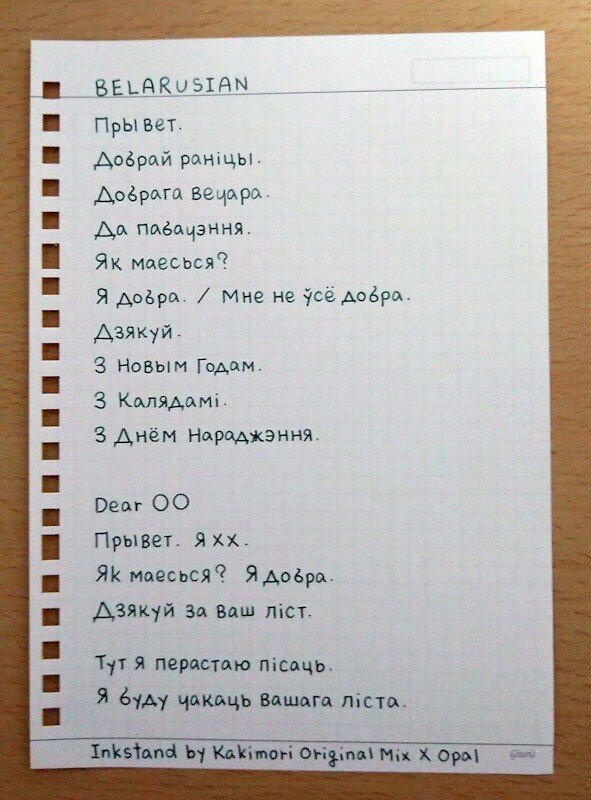 BELARUSIAN
Прывет.
Добрай раніцы.
Добрага вечара.
Да пабачэння.
Як маесься?
Я добра. / Мне не ўсё добра.
Дзякуй.
З Новым Годам.
З Калядамі.
З Днём Нараджэння.
Dear OO
Прывет. Я xx.
Як маесься? Я добра.
Дзякуй за ваш ліст.
Тут я перастаю пісаць.
Я буду чакаць вашага ліста.
Inkstand by Kakimori Original Mix X Opal